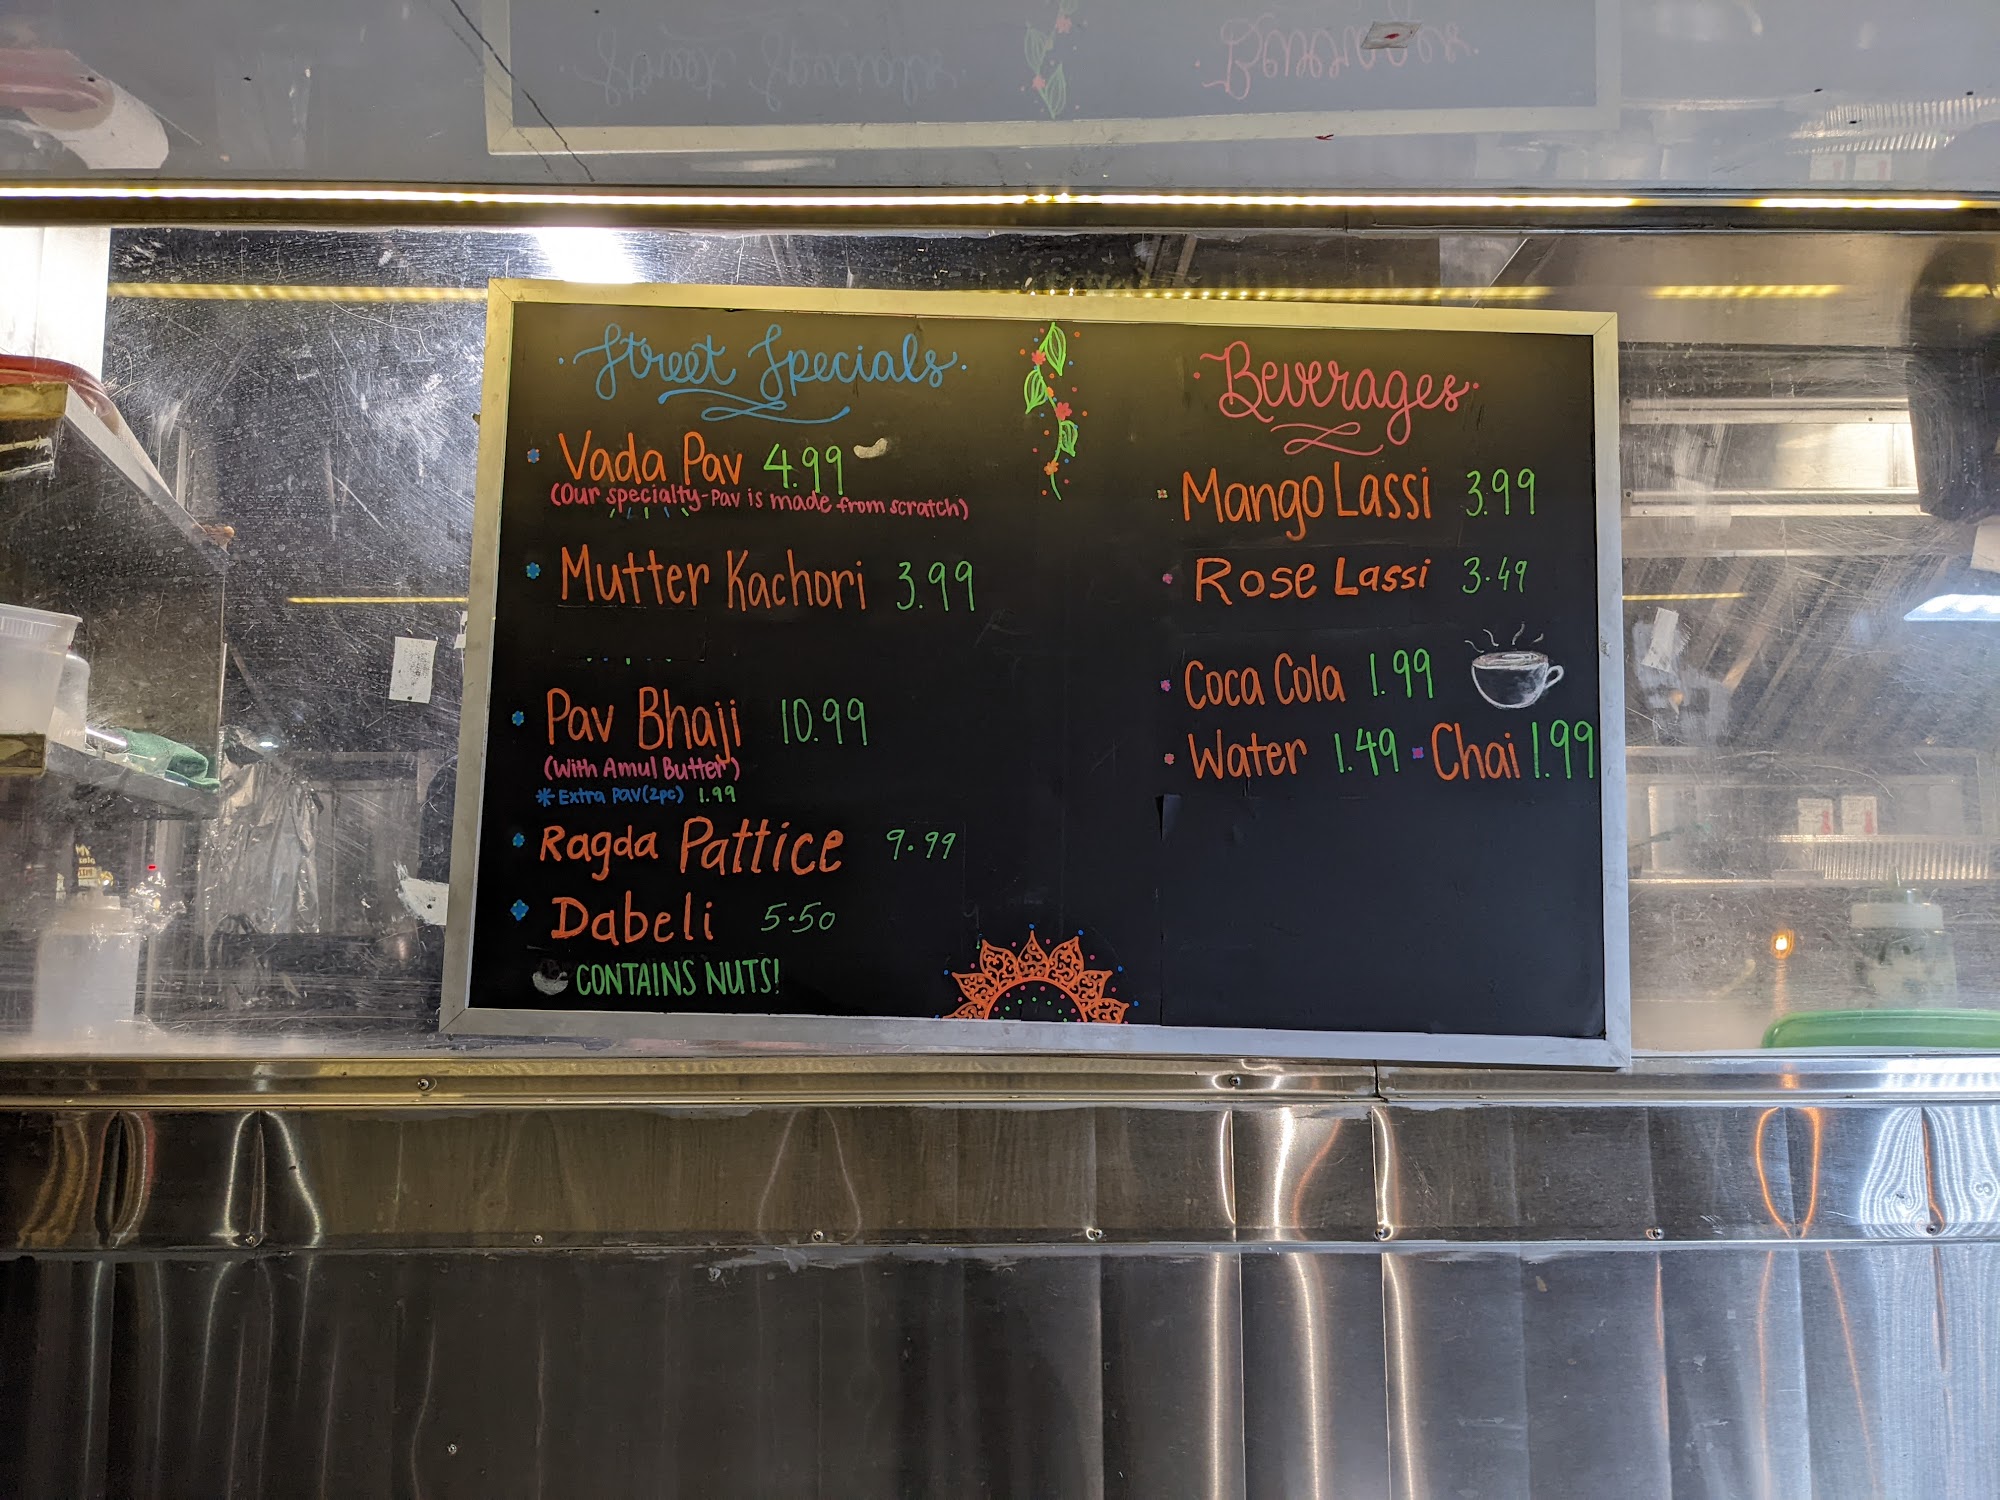 Street Specials
Vada Pav 4.99
(Our specialty-Pav is made from scratch)
Mutter Kachori 3.99
Pav Bhaji 10.99
(With Amul Butter)
* Extra Pav (2pc) 1.99
Ragda Pattice 9.99
Dabeli 5.50
CONTAINS NUTS!
Beverages
Mango Lassi 3.99
Rose Lassi 3.49
Coca Cola 1.99
Water 1.49 Chai 1.99